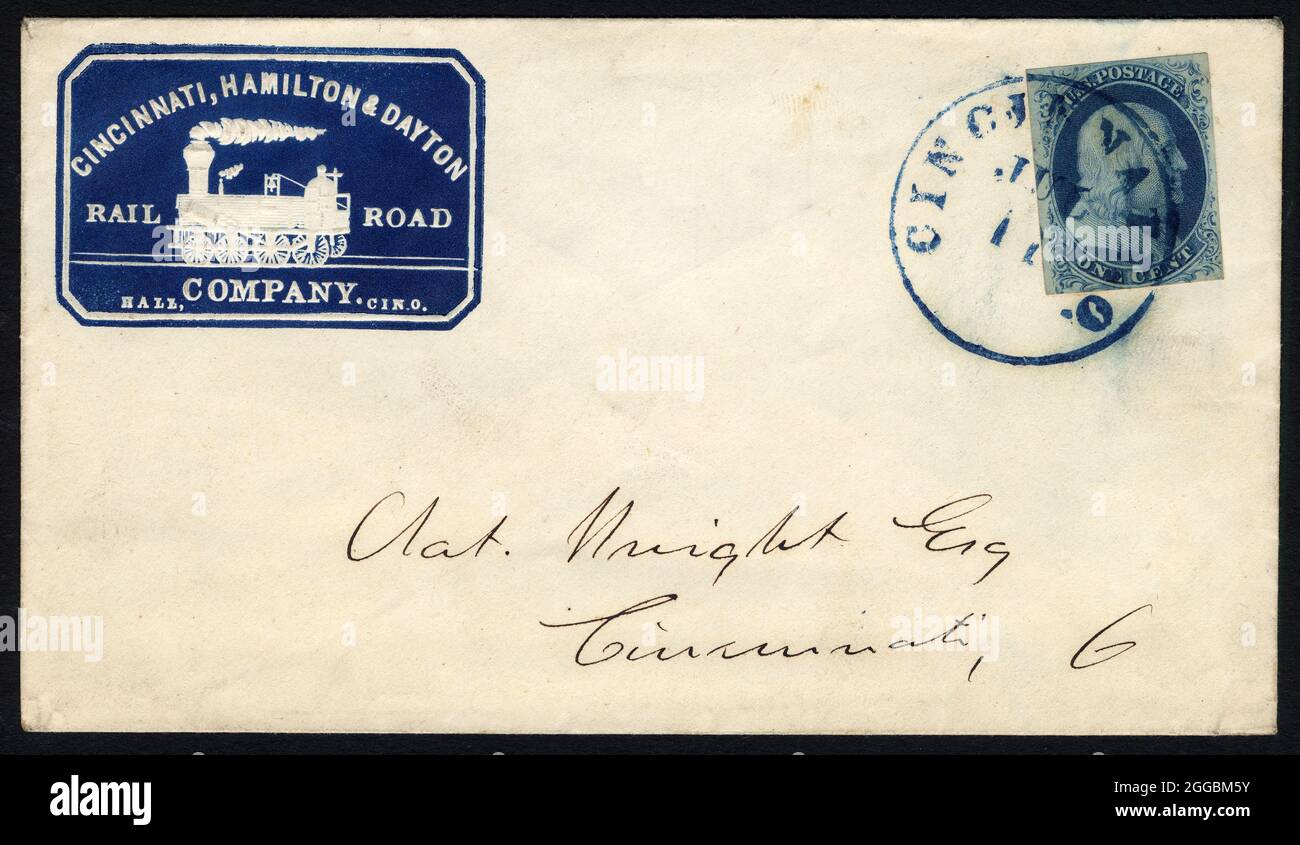 CINCINNATI, HAMILTON & DAYTON
RAIL ROAD
COMPANY.
HALL, CIN.O.
U.S. POSTAGE
ONE CENT.
CINCINNATI
11
O.
Wright Esq
Cincinnati, O
alamy
Image ID: 2GGBM5Y
www.alamy.com